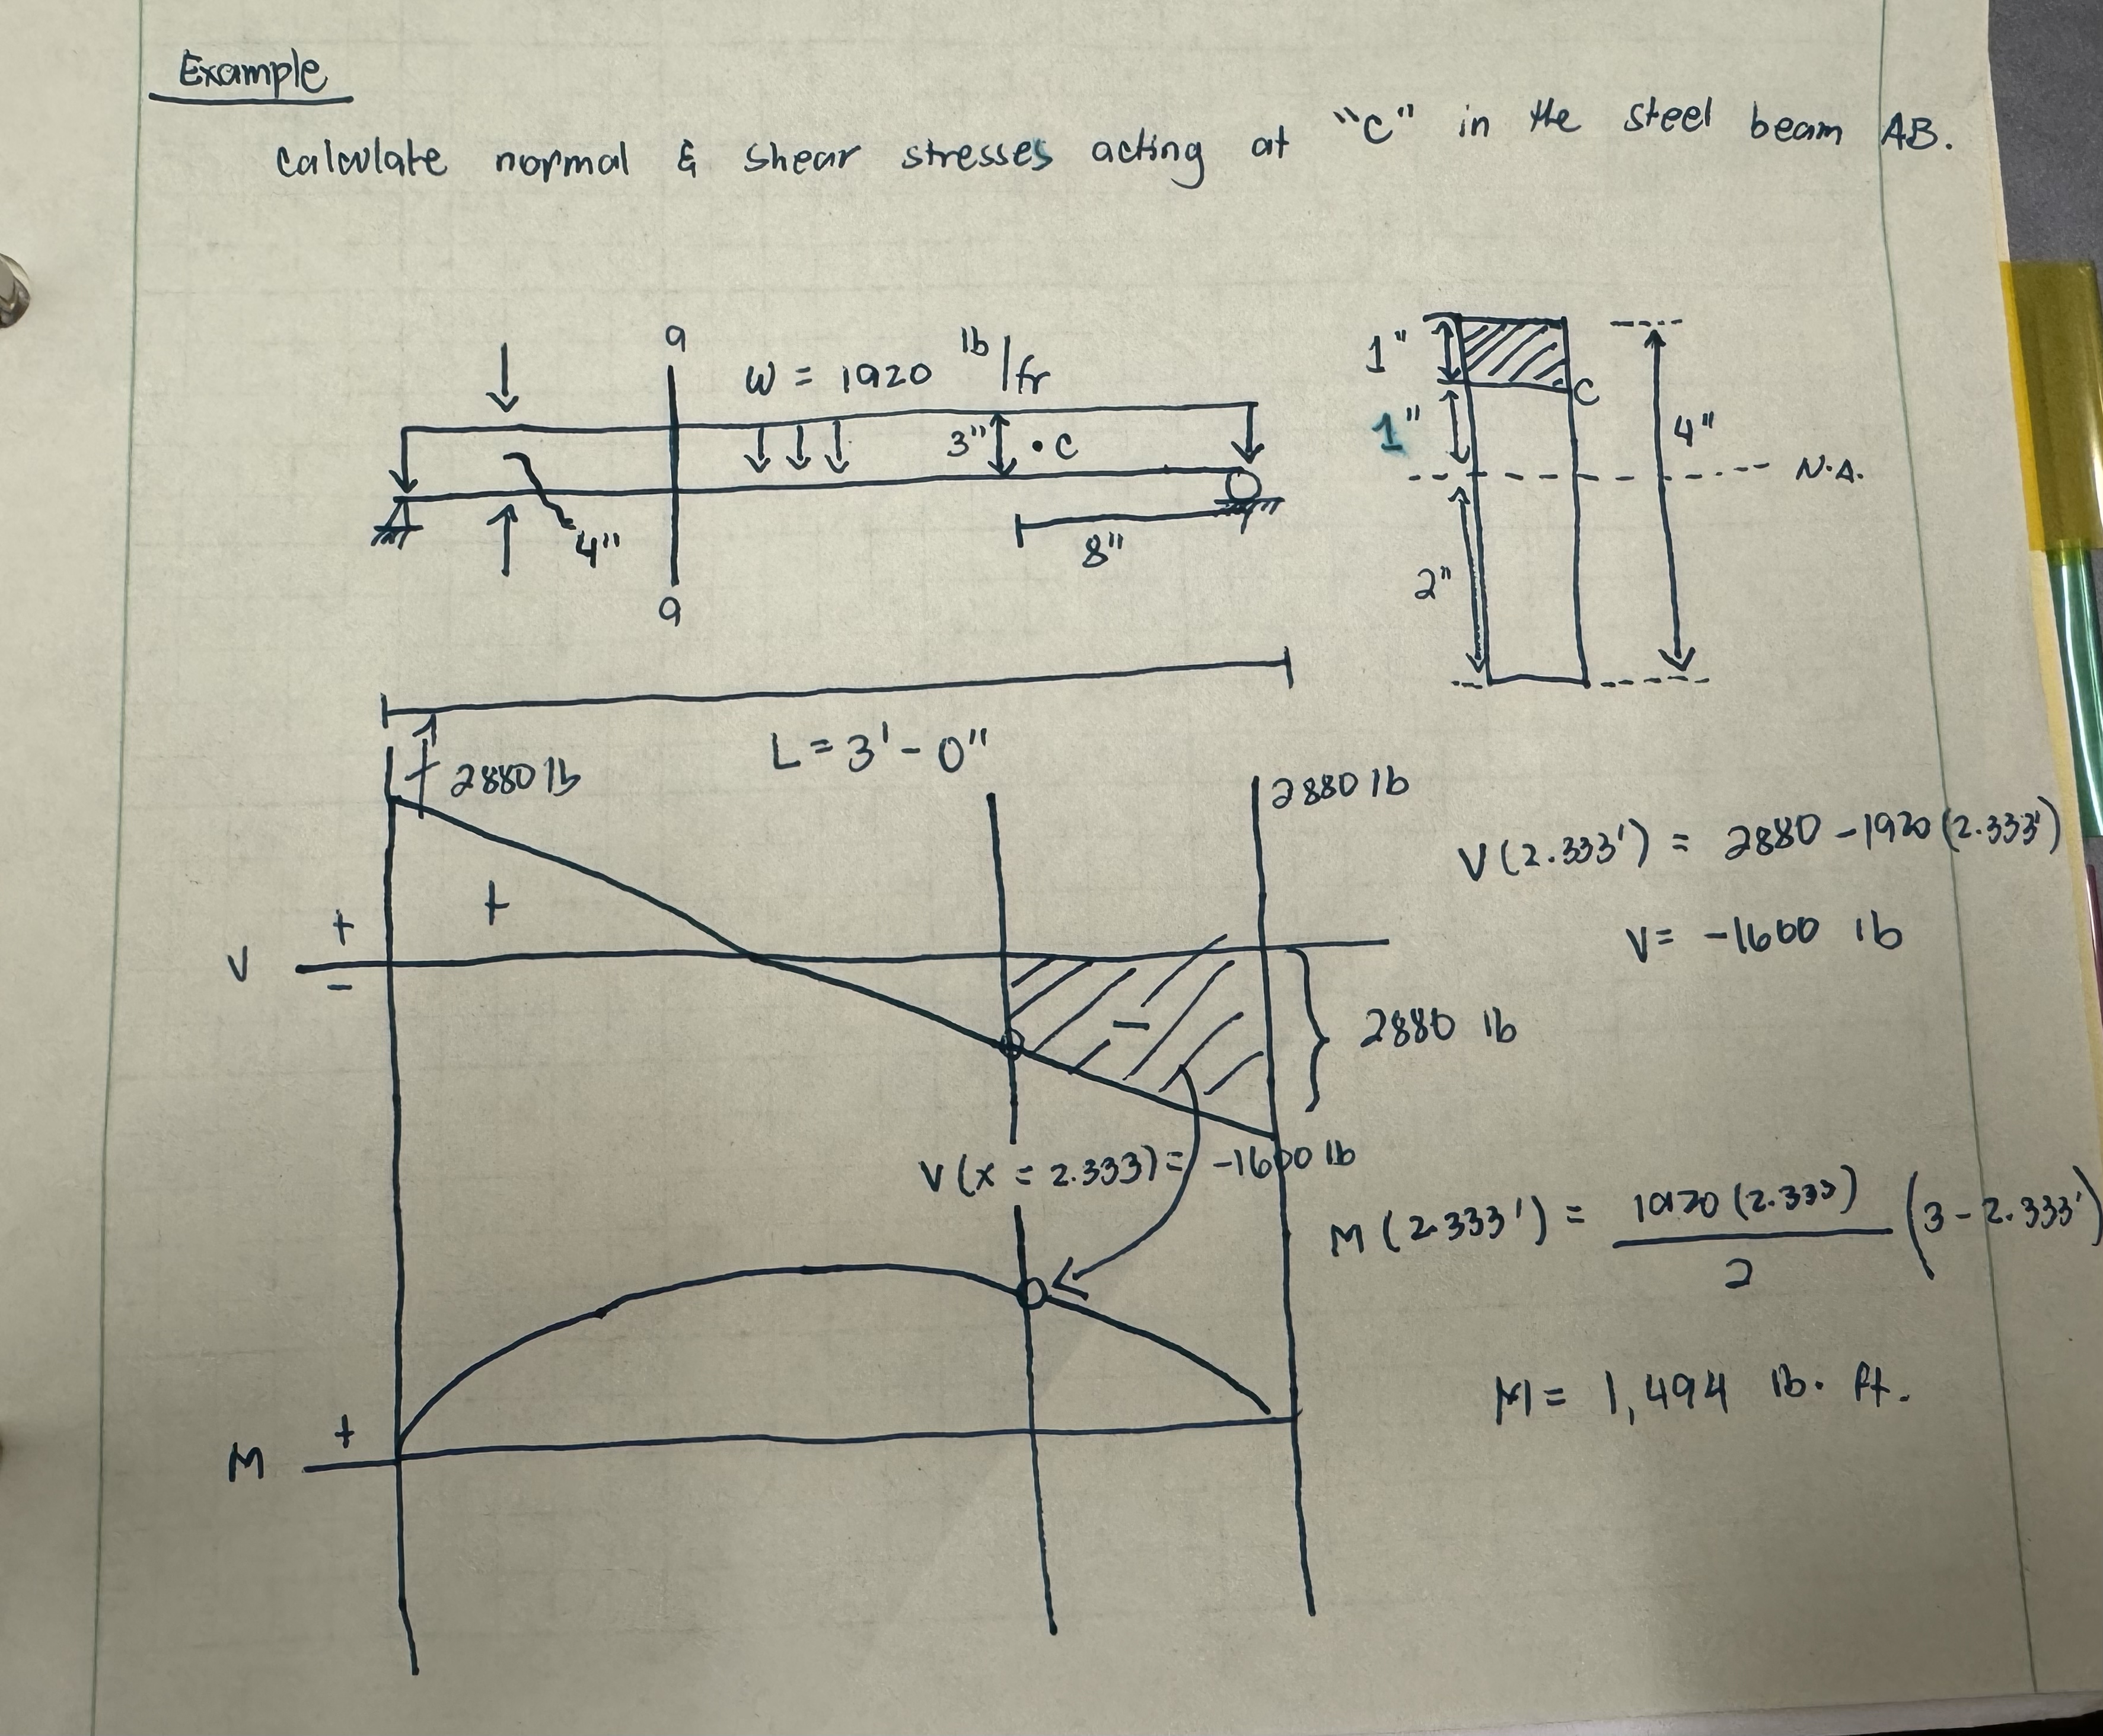 Example
calculate normal & shear stresses acting at "C" in the steel beam AB.
a
W = 1920 lb/ft
3" • C
4"
8"
a
1"
C
1"
4"
N.A.
2"
L = 3' - 0"
2880 lb
2880 lb
V(2.333') = 2880 - 1920 (2.333')
V = -1600 lb
+
+
V
-
-
2880 lb
V(x = 2.333) = -1600 lb
M(2.333') = 1920 (2.333) / 2 (3 - 2.333')
M = 1,494 lb. ft.
+
M